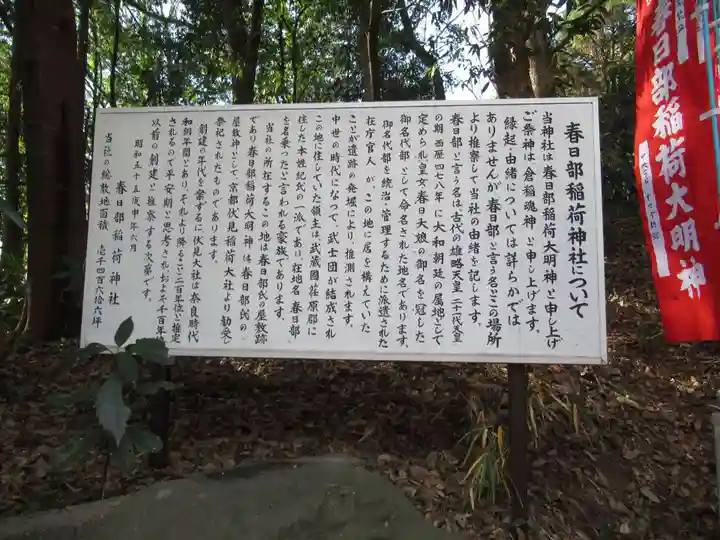 春日部稲荷神社について
当神社は春日部稲荷大明神と申し上げ
ご祭神は倉稲魂神と申し上げます。
縁起・由緒については詳らかでは
ありませんが春日部と言う名とこの場所
より推察して当社の由緒を記します。
春日部と言う名は古代の雄略天皇二十一代天皇
の期西歴四七八年に大和朝廷の属地として
定められ皇女春日大娘の御名を冠した
御名代部として命名された地名であります。
御名代部を統治、管理するために派遣された
在庁官人が、この地に居を構えていた
ことが遺跡の発堀により、推測されます。
中世の時代になって、武士団が結成され
この地に住していた領主は武蔵國荏原郡に
住した本姓紀氏の一派であり、在地名春日部
を名乗ったと言われる家族であります。
当社の所在するこの地は春日部氏の屋敷跡
であり春日部稲荷大明神は春日部氏の
屋敷神として、京都伏見稲荷大社より勧受し
祭祀されたものであります。
創建の年代を案ずるに伏見大社は奈良時代
和銅年間とあり、それより降ること二百年位と推定
されるので平安期と思考されおよそ千百年
以前の創建と推察する次第です。
昭和五十五戊申年六月
春日部稲荷神社
当社の総敷地面積 壱千四百六十六坪
春日部稲荷大明神